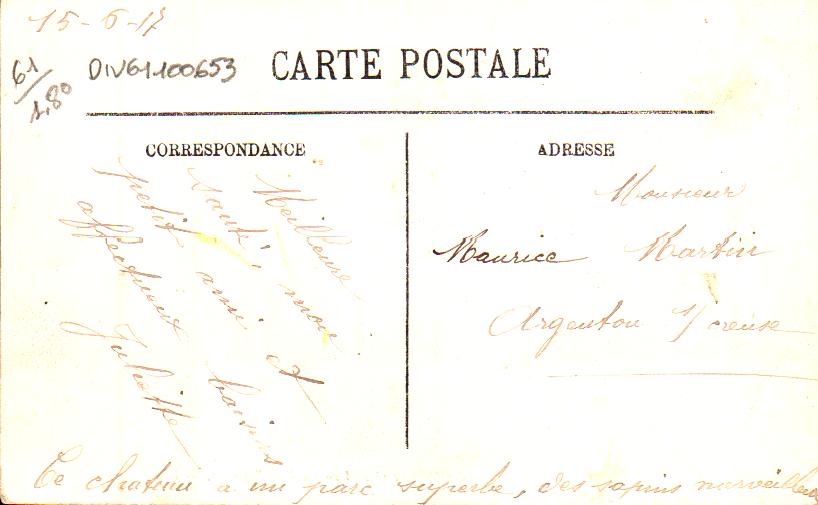 15-6-17
61/1,80
DIV61100653
CARTE POSTALE
CORRESPONDANCE
Meilleure
santé, mon
petit ami et
affectueux baisers
Juliette
ADRESSE
Monsieur
Maurice Martin
Argenton s/ creuse
Ce chateau a un parc superbe, des sapins merveilleux